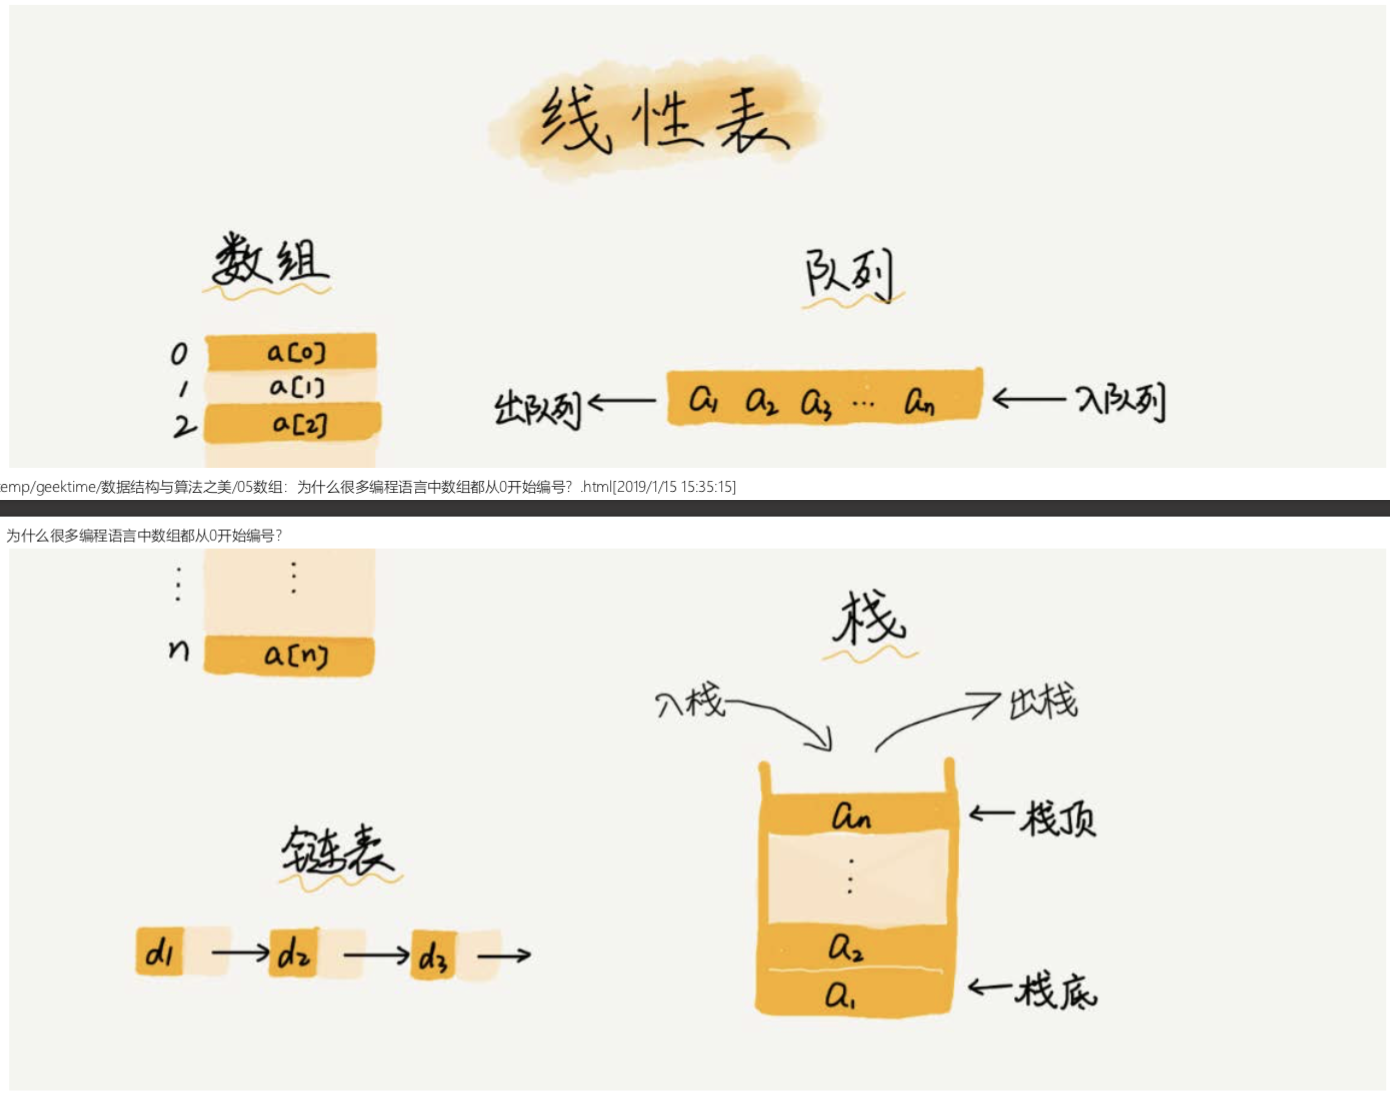 线性表
数组
0 a[0]
1 a[1]
2 a[2]
队列
出队列 a1 a2 a3 … an 入队列
temp/geektime/数据结构与算法之美/05数组：为什么很多编程语言中数组都从0开始编号？.html[2019/1/15 15:35:15]
为什么很多编程语言中数组都从0开始编号？
⋮ ⋮
n a[n]
链表
d1 d2 d3
栈
入栈 出栈
an 栈顶
⋮
a2
a1 栈底